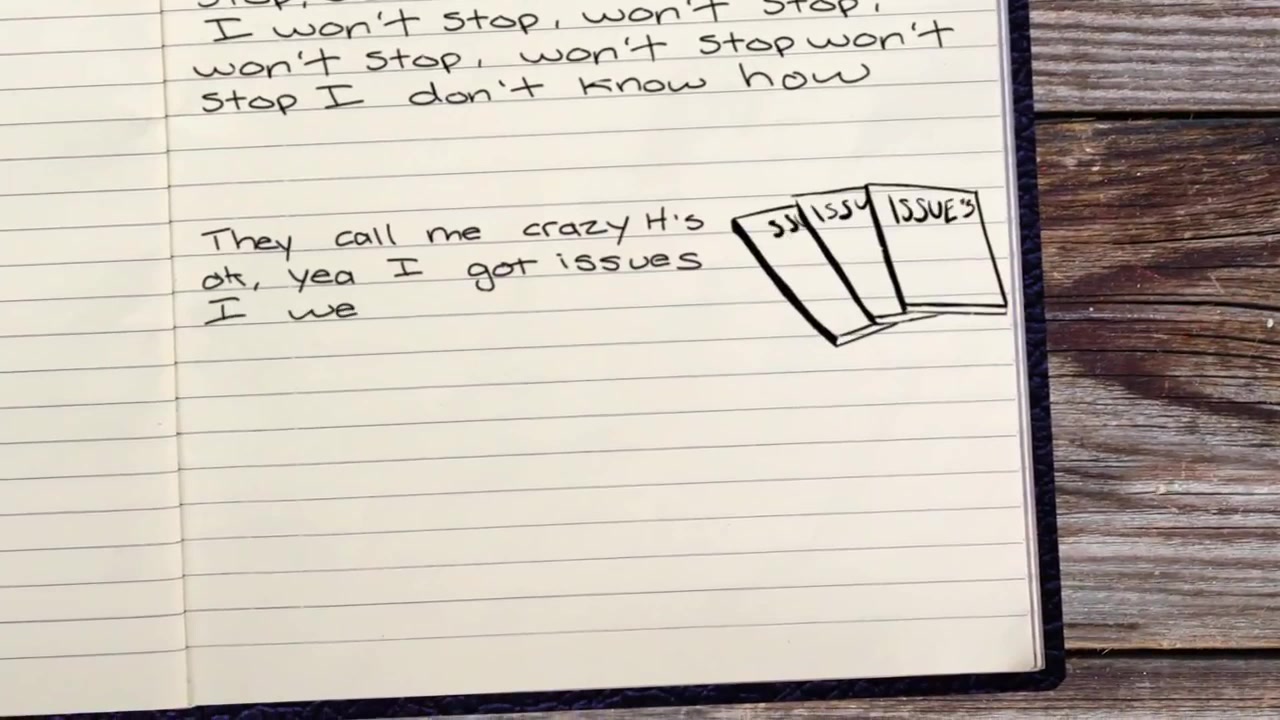 I won't stop, won't stop,
won't stop, won't stop won't
stop I don't know how
They call me crazy It's
ok, yea I got issues
I we
ISSU
ISSUE'S